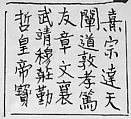 熹宗達天
闡道敦孝篤
友章文襄
武靖穆莊勤
哲皇帝寶